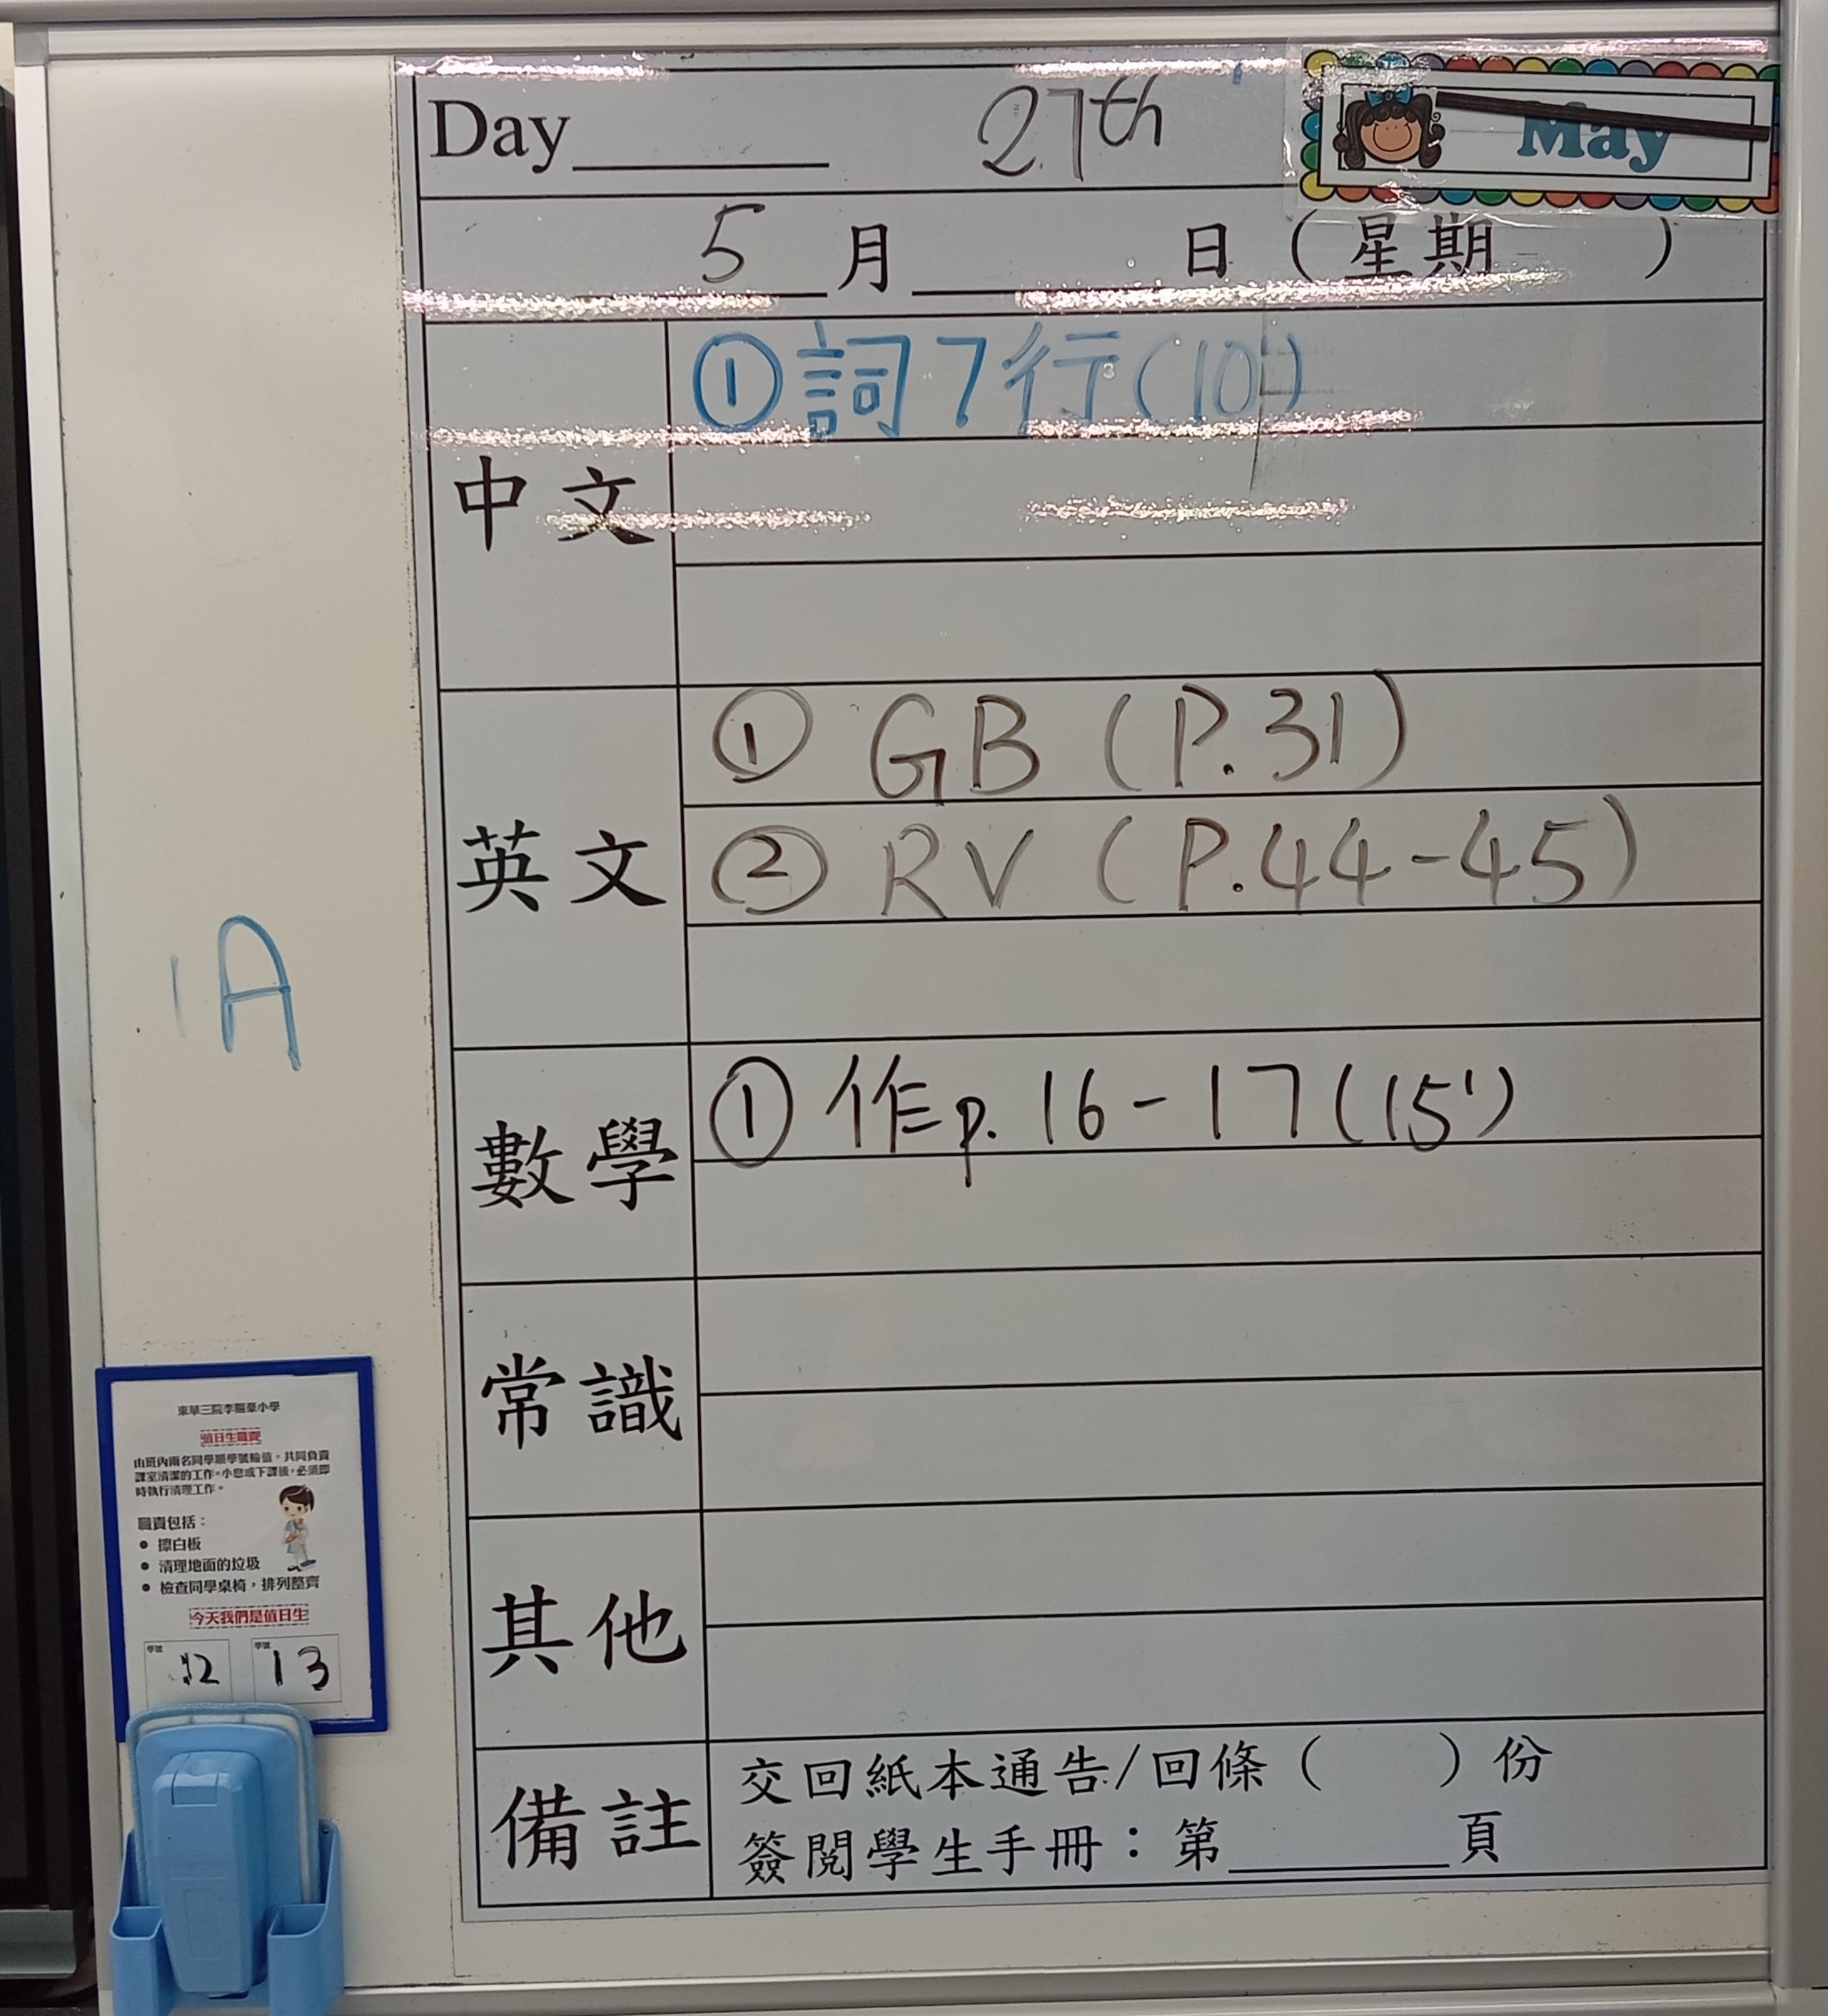 Day______ 27th May
5 月 ______ 日 ( 星期 )
中文
① 詞 7 行 (10')
英文
① GB (P.31)
② RV (P.44-45)
數學
① 作 p. 16-17 (15')
常識
其他
備註
交回紙本通告/回條 ( ) 份
簽閱學生手冊：第______頁
1A
值日生職責
由班內兩名同學順學號輪值，共同負責
課室清潔的工作。小息或下課後，必須即
時執行清理工作。
職責包括：
• 擦白板
• 清理地面的垃圾
• 檢查同學桌椅，排列整齊
今天我們是值日生
學號 12 學號 13